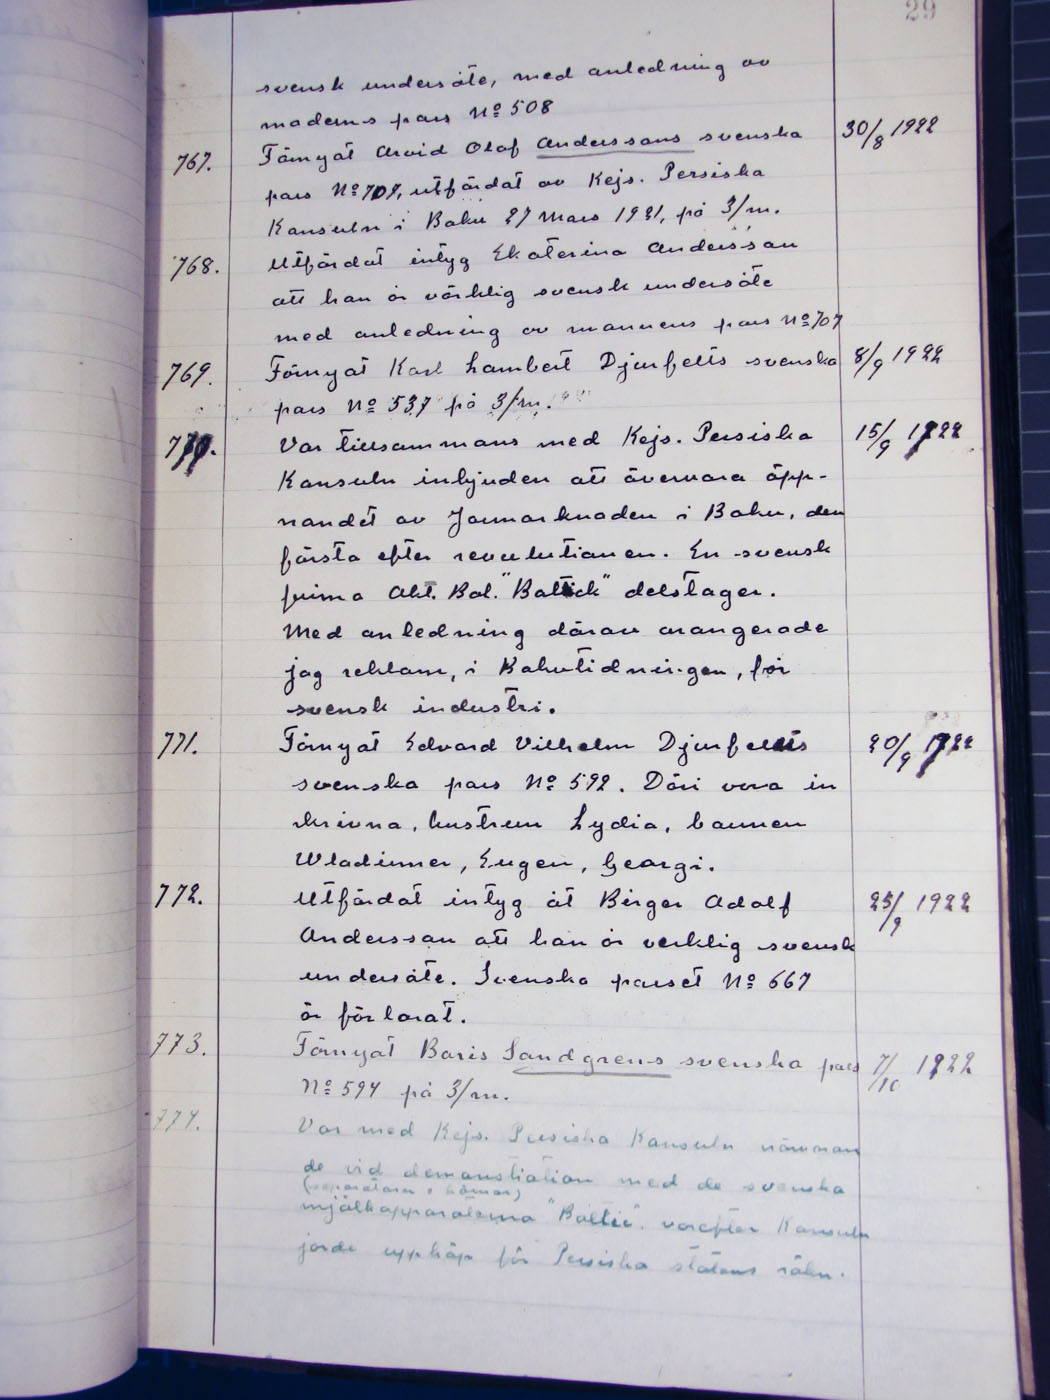 29
svensk undersåte, med anledning av
moderns pass № 508
767. Förnyat Arvid Olof Anderssons svenska 30/8 1922
pass № 707, utfärdat av Kejs. Persiska
Konsuln i Baku 27 Mars 1921, på 3/m.
768. Utfärdat intyg Ekaterina Andersson
att han är värklig svensk undersåte
med anledning av mannens pass № 707
769. Förnyat Karl Lambert Djurfelts svenska 8/9 1922
pass № 537 på 3/m.
770. Var tillsammans med Kejs. Persiska 15/9 1922
Konsuln inbjuden att övervara öpp-
nandet av Jarmarknaden i Baku, den
första efter revolutionen. En svensk
firma Akt. Bol. "Baltick" delstager.
Med anledning därav arangerade
jag reklam, i Bakutidningen, för
svensk industri.
771. Förnyat Edvard Vilhelm Djurfelts 20/9 1922
svenska pass № 592. Däri vora in
skrivna, hustrun Lydia, barnen
Wladimer, Eugen, Georgi.
772. Utfärdat intyg åt Birger Adolf 25/9 1922
Andersson att han är verklig svensk
undersåte. Svenska passet № 667
är förlorat.
773. Förnyat Boris Sandgrens svenska pass 7/10 1922
№ 594 på 3/m.
774. Var med Kejs. Persiska Konsuln närvaran
de vid demonstration med de svenska
(separatorn o kärnor)
mjölkapparaterna "Baltic". varefter Konsuln
jorde uppköp för Persiska statens räkn.